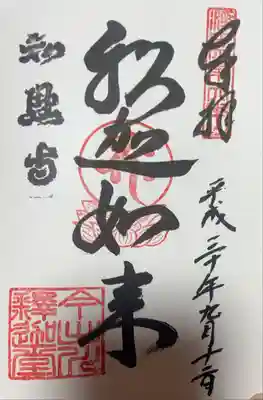 奉拝
平成三十年九月十二日
釈迦如来
知恩寺
今出川
釋迦堂